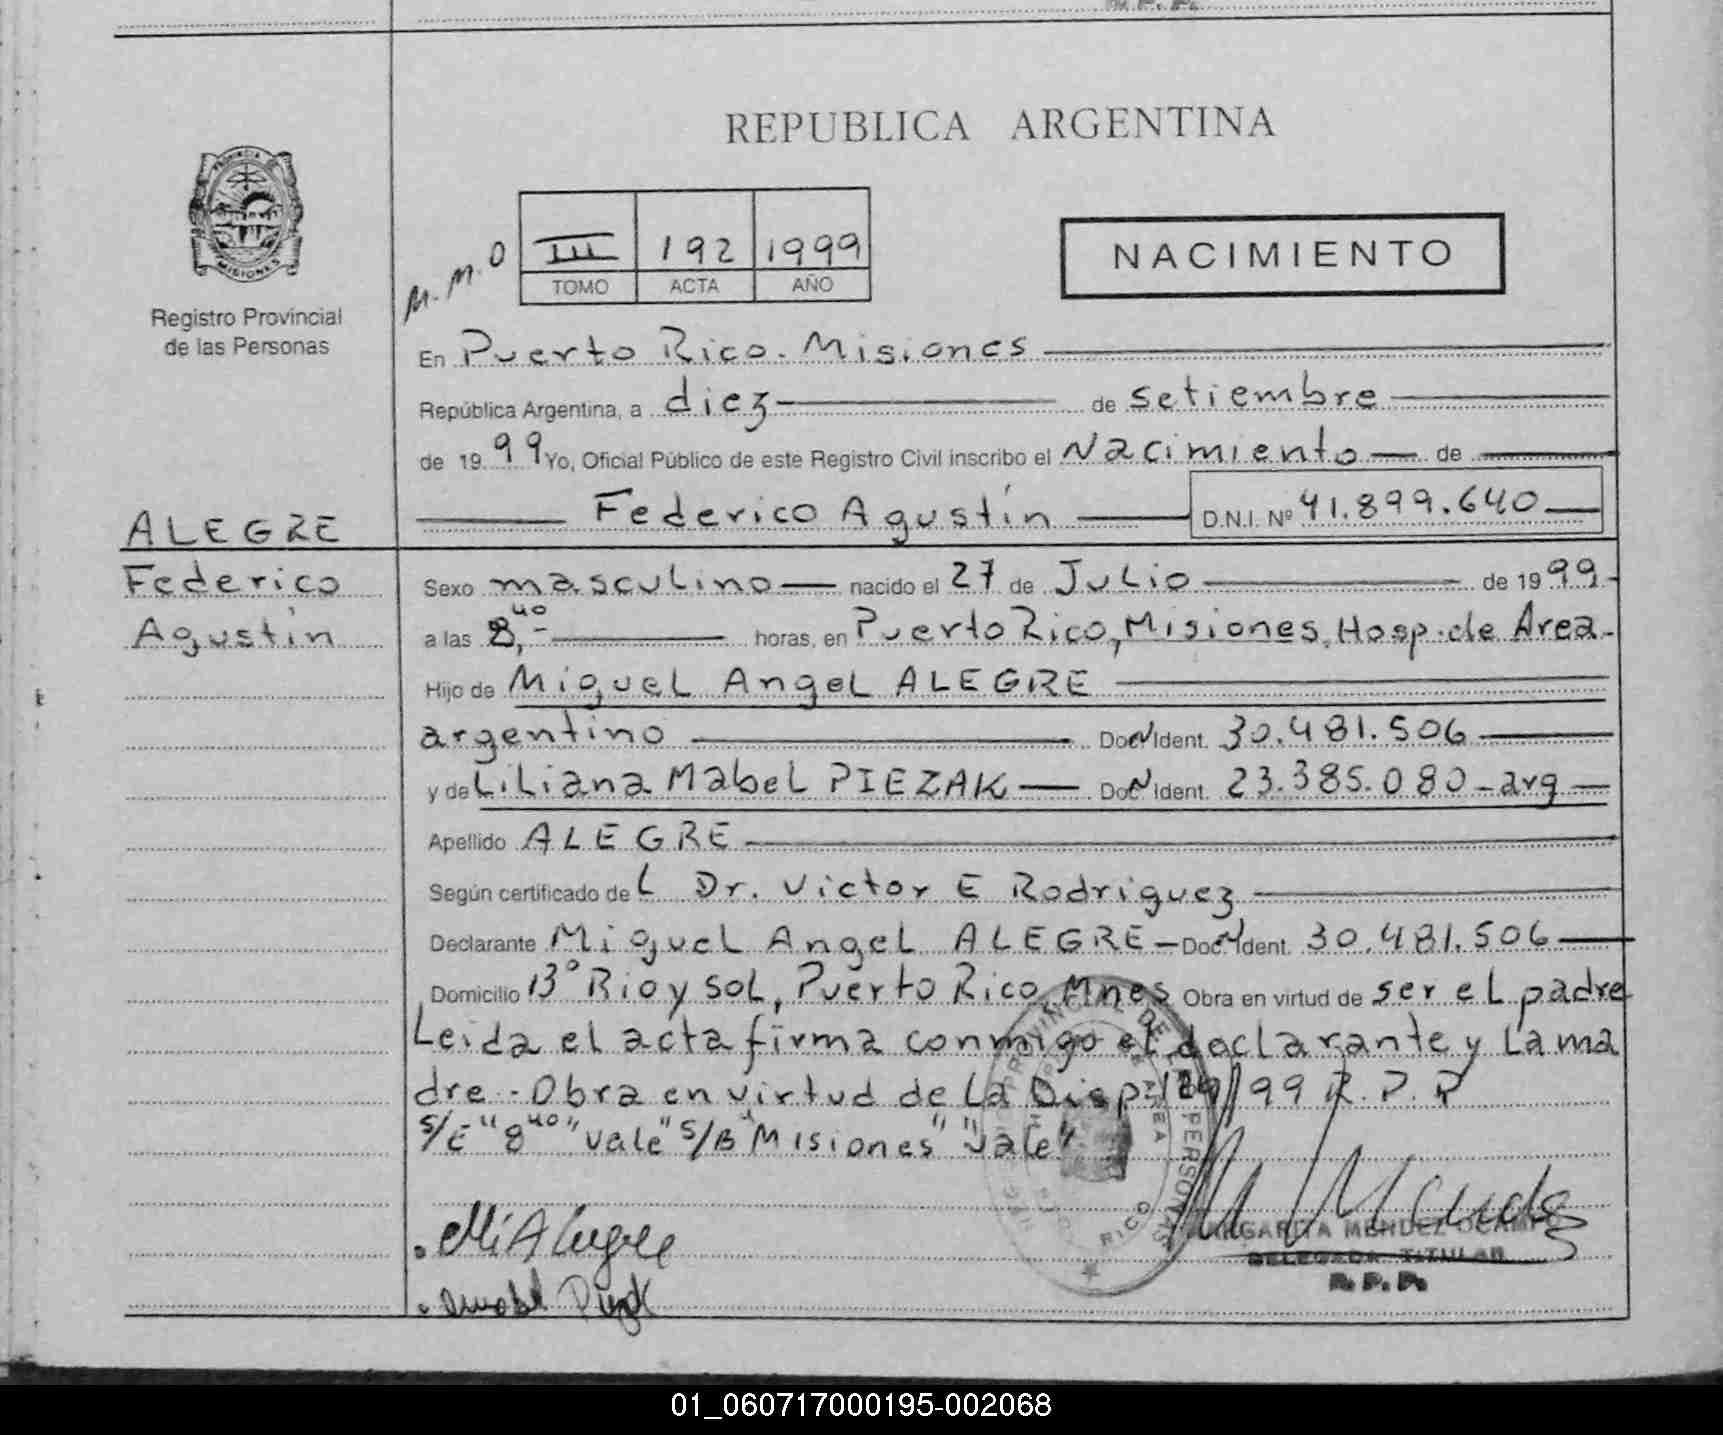 R.P.P.
REPUBLICA ARGENTINA
PROVINCIA DE
MISIONES
Registro Provincial
de las Personas
M.M.O
III 192 1999
TOMO ACTA AÑO
NACIMIENTO
En Puerto Rico. Misiones
República Argentina, a diez de setiembre
de 19 99 Yo, Oficial Público de este Registro Civil inscribo el Nacimiento de
Federico Agustín D.N.I. Nº 41.899.640
ALEGRE
Federico
Agustín
Sexo masculino nacido el 27 de Julio de 19 99
a las 8,40 horas, en Puerto Rico, Misiones, Hosp. de Area
Hijo de Miguel Angel ALEGRE
argentino Doc N Ident. 30.481.506
y de Liliana Mabel PIEZAK Doc N Ident. 23.385.080 - arg
Apellido ALEGRE
Según certificado del Dr. Victor E Rodriguez
Declarante Miguel Angel ALEGRE - Doc N Ident. 30.481.506
Domicilio Bº Rio y sol, Puerto Rico, Mnes Obra en virtud de ser el padre
Leida el acta firma conmigo el declarante y La ma
dre - Obra en virtud de la Disp. /99 R.P.P
S/E "8 40" "vale" S/B "Misiones" "vale"
MARGARITA MENDEZ OCAMPO
DELEGADA TITULAR
R.P.P.
01_060717000195-002068